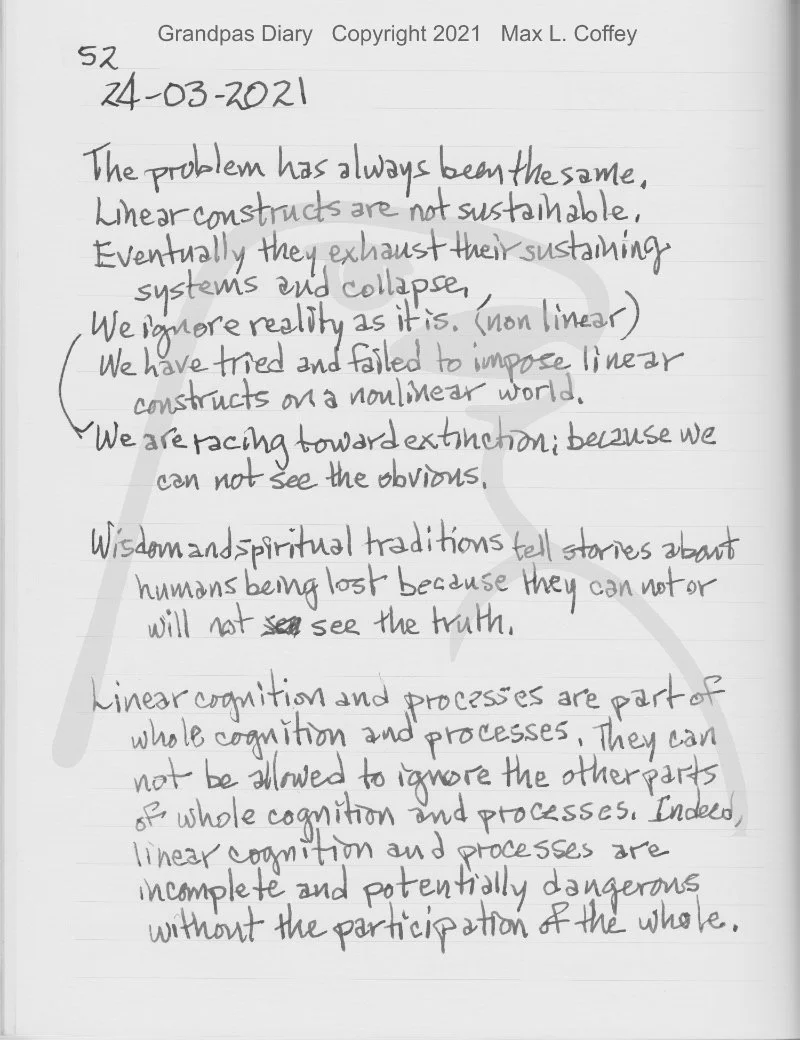 Grandpas Diary Copyright 2021 Max L. Coffey
52
24-03-2021
The problem has always been the same.
Linear constructs are not sustainable.
Eventually they exhaust their sustaining
systems and collapse.
We ignore reality as it is. (non linear)
We have tried and failed to impose linear
constructs on a nonlinear world.
We are racing toward extinction; because we
can not see the obvious.
Wisdom and spiritual traditions tell stories about
humans being lost because they can not or
will not see the truth.
Linear cognition and processes are part of
whole cognition and processes. They can
not be allowed to ignore the other parts
of whole cognition and processes. Indeed,
linear cognition and processes are
incomplete and potentially dangerous
without the participation of the whole.